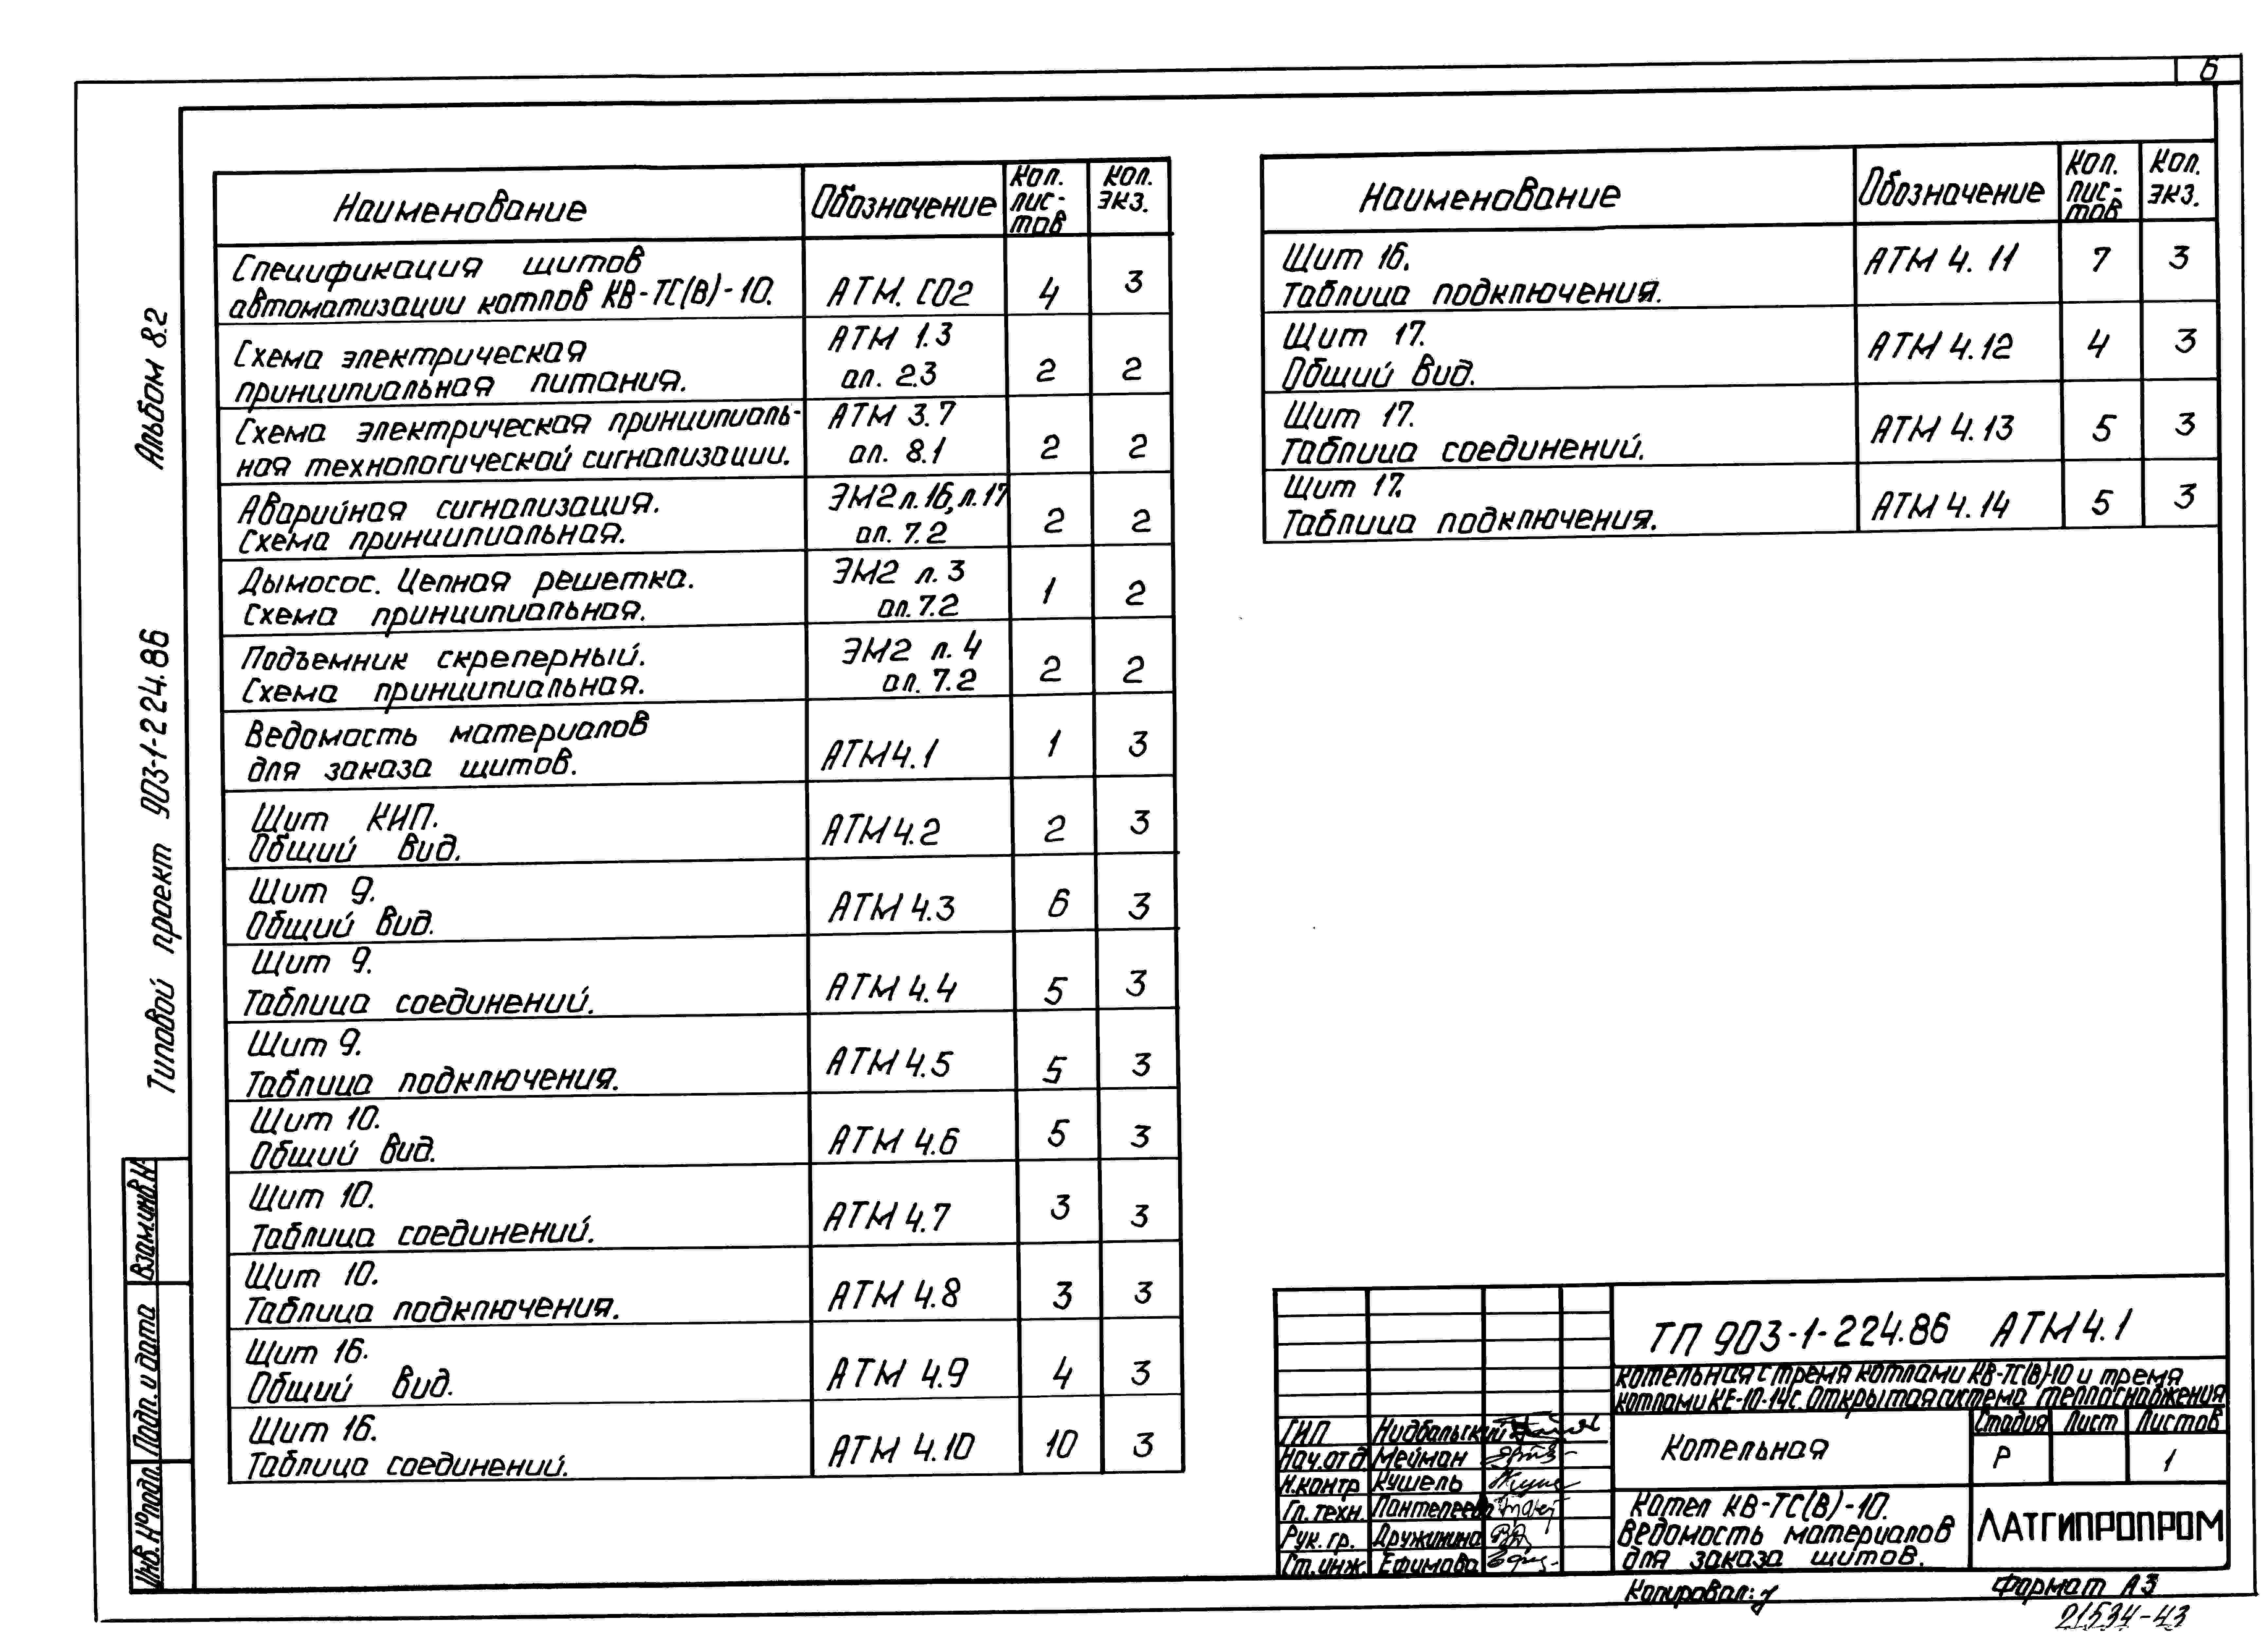 6
Альбом 8.2
Типовой проект 903-1-224.86
Взам.инв.№
Подп. и дата
Инв.№подл.
Наименование Обозначение Кол. лис-тов Кол. экз.
Спецификация щитов
автоматизации котлов КВ-ТС(В)-10. АТМ. СО2 4 3
Схема электрическая АТМ 1.3
принципиальная питания. ал. 2.3 2 2
Схема электрическая принципиаль- АТМ 3.7
ная технологической сигнализации. ал. 8.1 2 2
Аварийная сигнализация. ЭМ2 л.16, л.17
Схема принципиальная. ал. 7.2 2 2
Дымосос. Цепная решетка. ЭМ2 л. 3
Схема принципиальная. ал. 7.2 1 2
Подъемник скреперный. ЭМ2 л. 4
Схема принципиальная. ал. 7.2 2 2
Ведомость материалов
для заказа щитов. АТМ4.1 1 3
Щит КИП.
Общий вид. АТМ4.2 2 3
Щит 9.
Общий вид. АТМ 4.3 6 3
Щит 9.
Таблица соединений. АТМ 4.4 5 3
Щит 9.
Таблица подключения. АТМ 4.5 5 3
Щит 10.
Общий вид. АТМ 4.6 5 3
Щит 10.
Таблица соединений. АТМ 4.7 3 3
Щит 10.
Таблица подключения. АТМ 4.8 3 3
Щит 16.
Общий вид. АТМ 4.9 4 3
Щит 16.
Таблица соединений. АТМ 4.10 10 3
Наименование Обозначение Кол. лис-тов Кол. экз.
Щит 16.
Таблица подключения. АТМ 4.11 7 3
Щит 17.
Общий вид. АТМ 4.12 4 3
Щит 17.
Таблица соединений. АТМ 4.13 5 3
Щит 17.
Таблица подключения. АТМ 4.14 5 3
ТП 903-1-224.86 АТМ4.1
Котельная с тремя котлами КВ-ТС(В)-10 и тремя
котлами КЕ-10-14с. Открытая система теплоснабжения
ГИП Нидбальский
Нач.отд. Мейман
Н.контр Кушель
Гл.техн. Пантелеева
Рук. гр. Дружинина
Ст.инж. Ефимова
Котельная
Стадия Лист Листов
Р 1
Котел КВ-ТС(В)-10.
Ведомость материалов
для заказа щитов.
ЛАТГИПРОПРОМ
Копировал:
Формат А3
21534-43